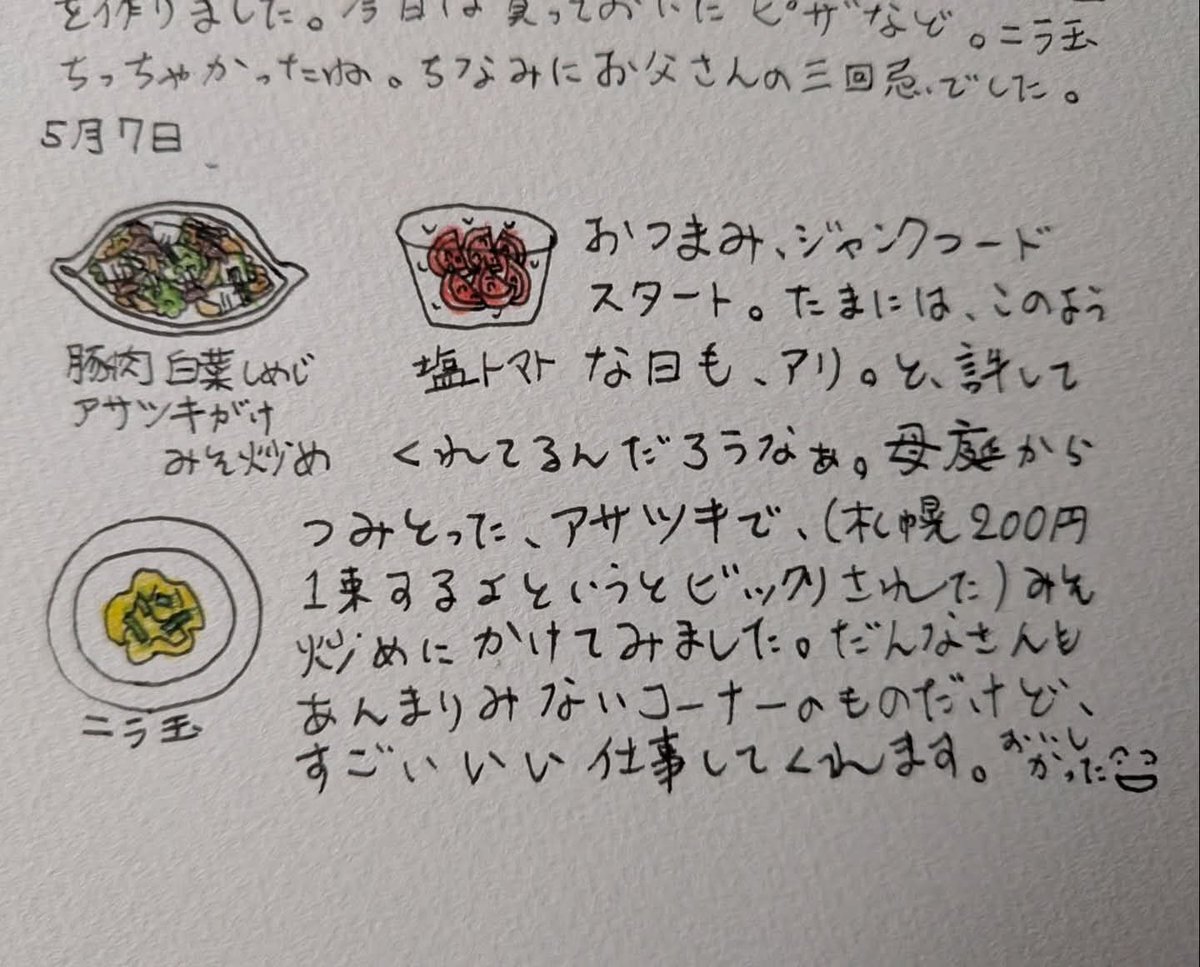 を作りました。今日は買っておいたピザなど。ニラ玉
ちっちゃかったね。ちなみにお父さんの三回忌でした。
5月7日
豚肉 白菜 しめじ
アサツキがけ
みそ炒め
塩トマト
おつまみ、ジャンクフード
スタート。たまには、このよう
な日も、アリ。と、許して
くれてるんだろうなぁ。母庭から
つみとった、アサツキで、(札幌200円
1束するよというとビックリされた)みそ
炒めにかけてみました。だんなさんも
あんまりみないコーナーのものだけど、
すごいいい仕事してくれます。おいし
かった
ニラ玉